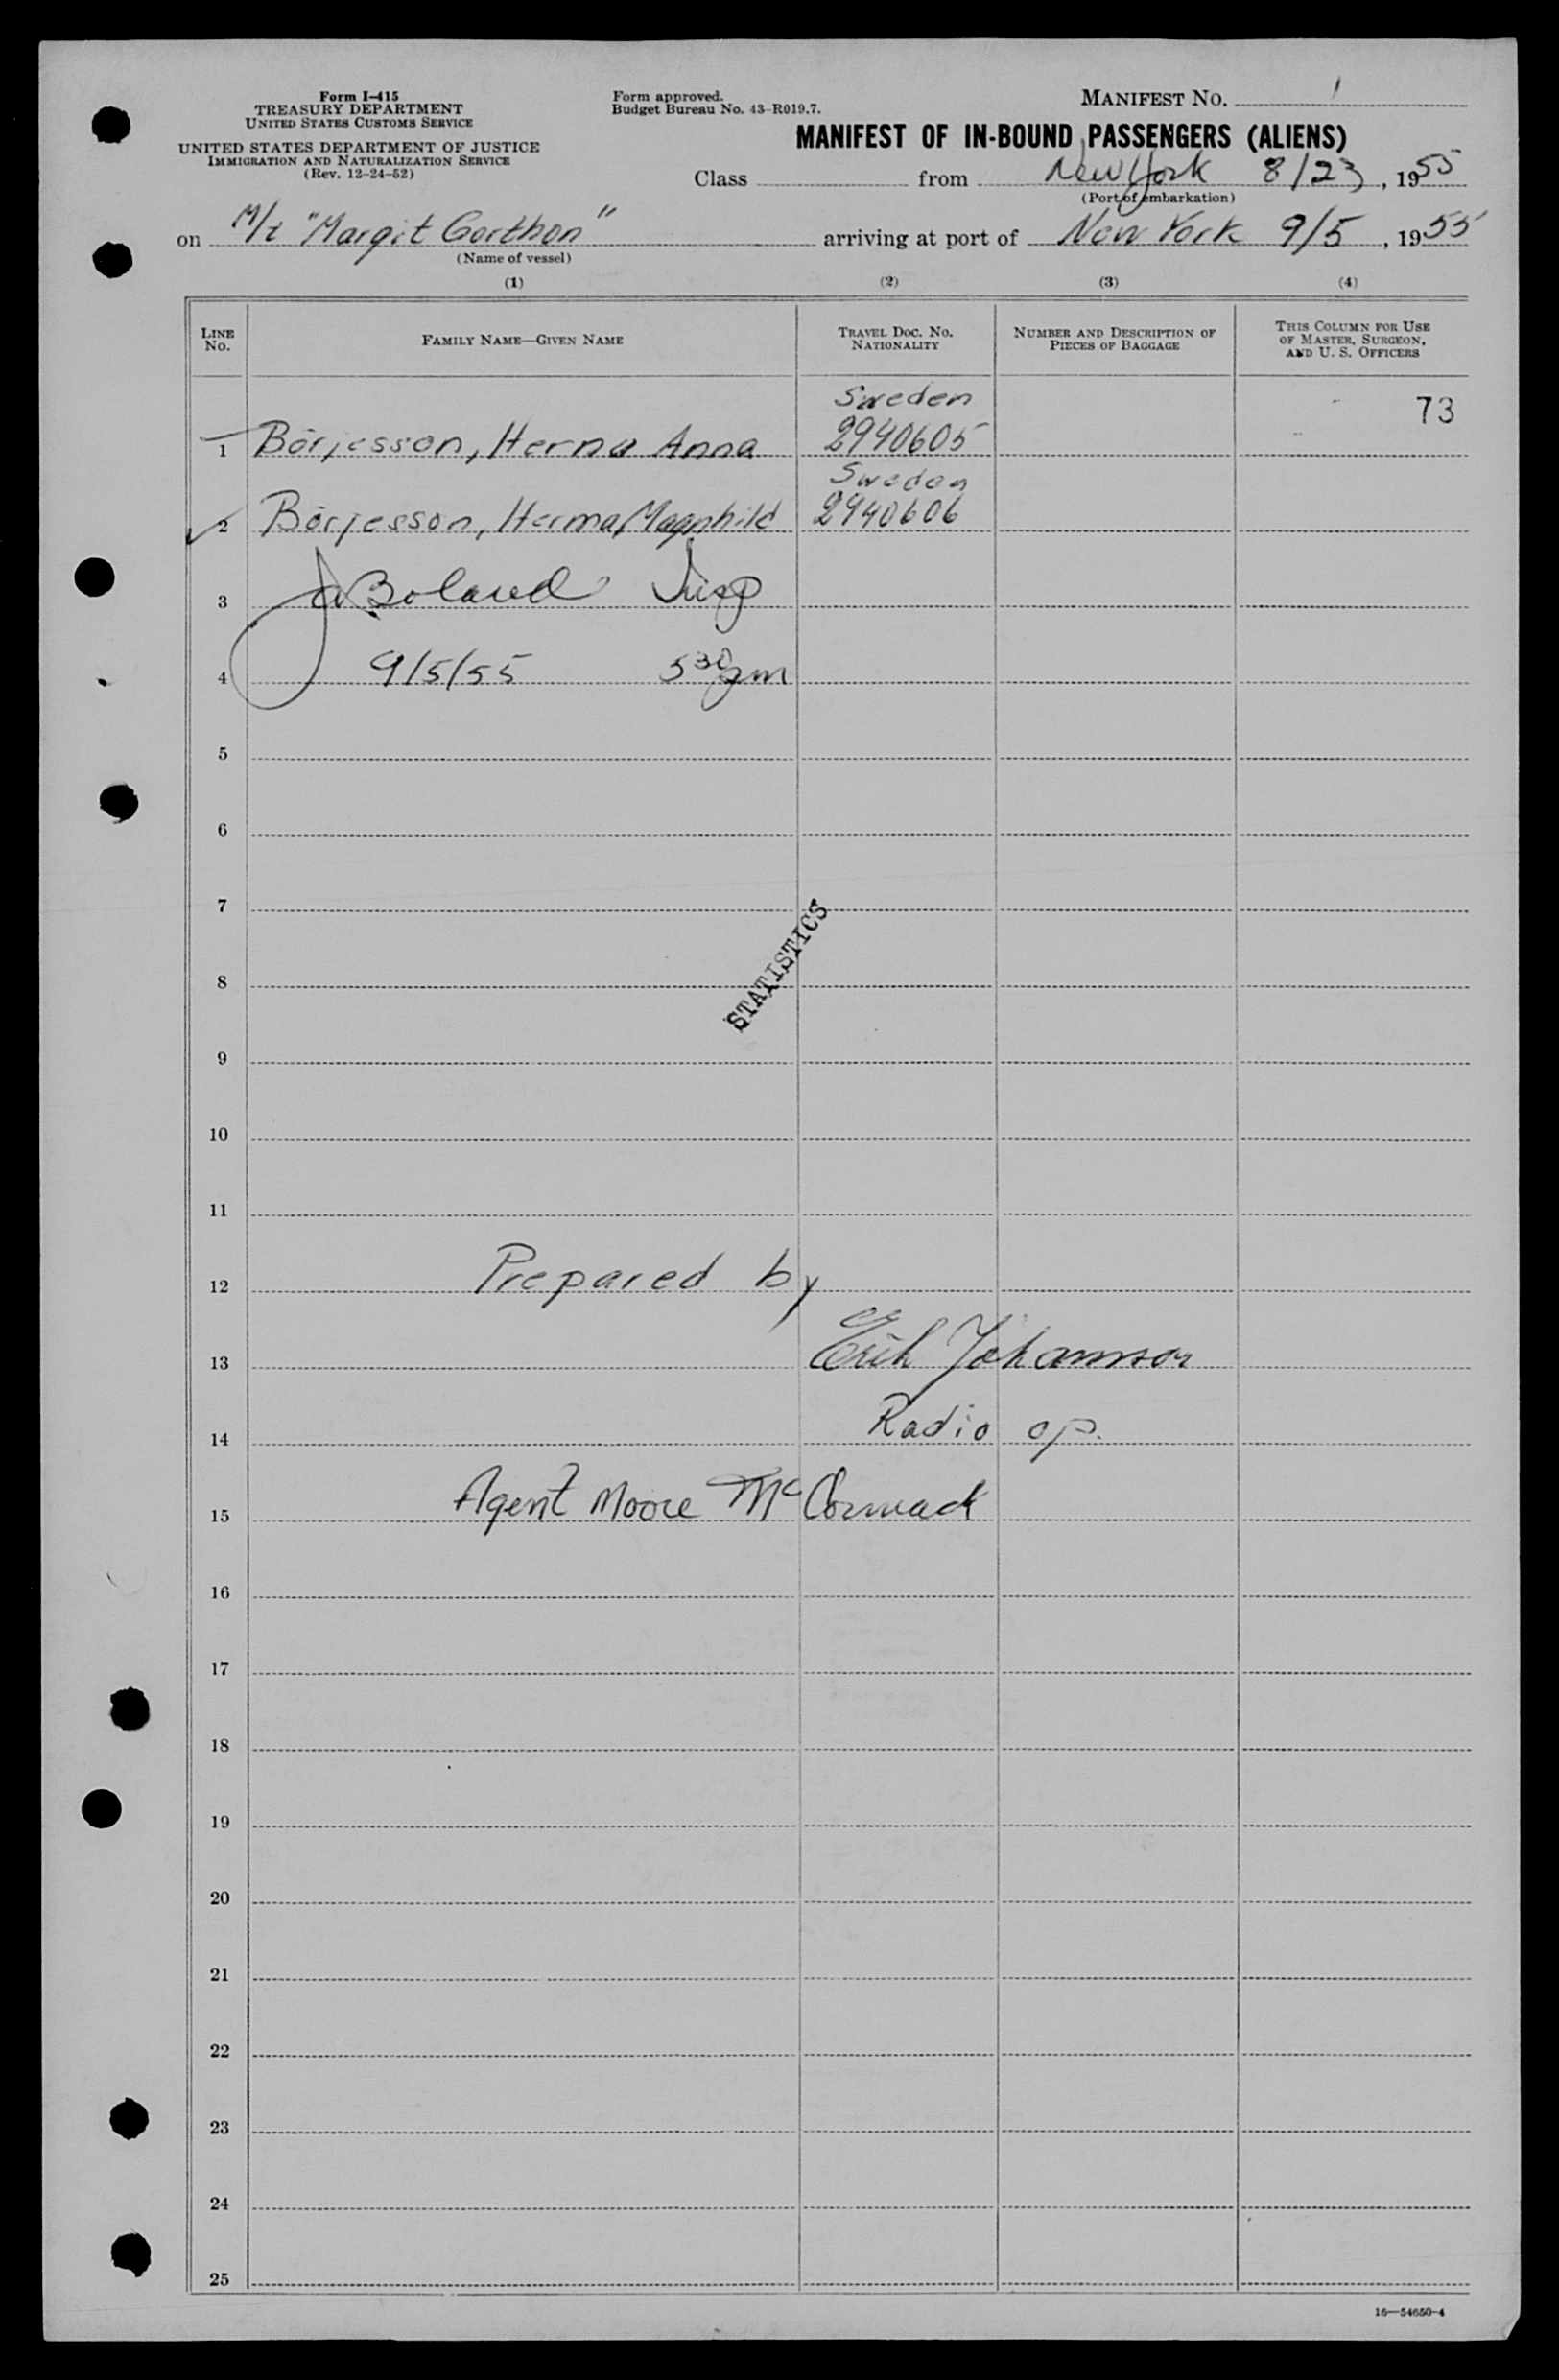 Form I-415
TREASURY DEPARTMENT
UNITED STATES CUSTOMS SERVICE
UNITED STATES DEPARTMENT OF JUSTICE
IMMIGRATION AND NATURALIZATION SERVICE
(Rev. 12-24-52)
Form approved.
Budget Bureau No. 43-R019.7.
MANIFEST NO. 1
MANIFEST OF IN-BOUND PASSENGERS (ALIENS)
Class from New York 8/23, 1955
(Port of embarkation)
on M/t "Margit Gorthon" arriving at port of New York 9/5, 1955
(Name of vessel)
(1) (2) (3) (4)
LINE NO. FAMILY NAME—GIVEN NAME TRAVEL DOC. NO. NATIONALITY NUMBER AND DESCRIPTION OF PIECES OF BAGGAGE THIS COLUMN FOR USE OF MASTER, SURGEON, AND U. S. OFFICERS
Sweden 73
1 Börjesson, Herna Anna 2940605
Sweden
2 Börjesson, Herma Magnhild 2940606
3 Boland Insp
4 9/5/55 5 30 pm
5
6
7
STATISTICS
8
9
10
11
12 Prepared by
13 Erik Johannson
14 Radio op.
15 Agent Moore McCormack
16
17
18
19
20
21
22
23
24
25
16—54650-4